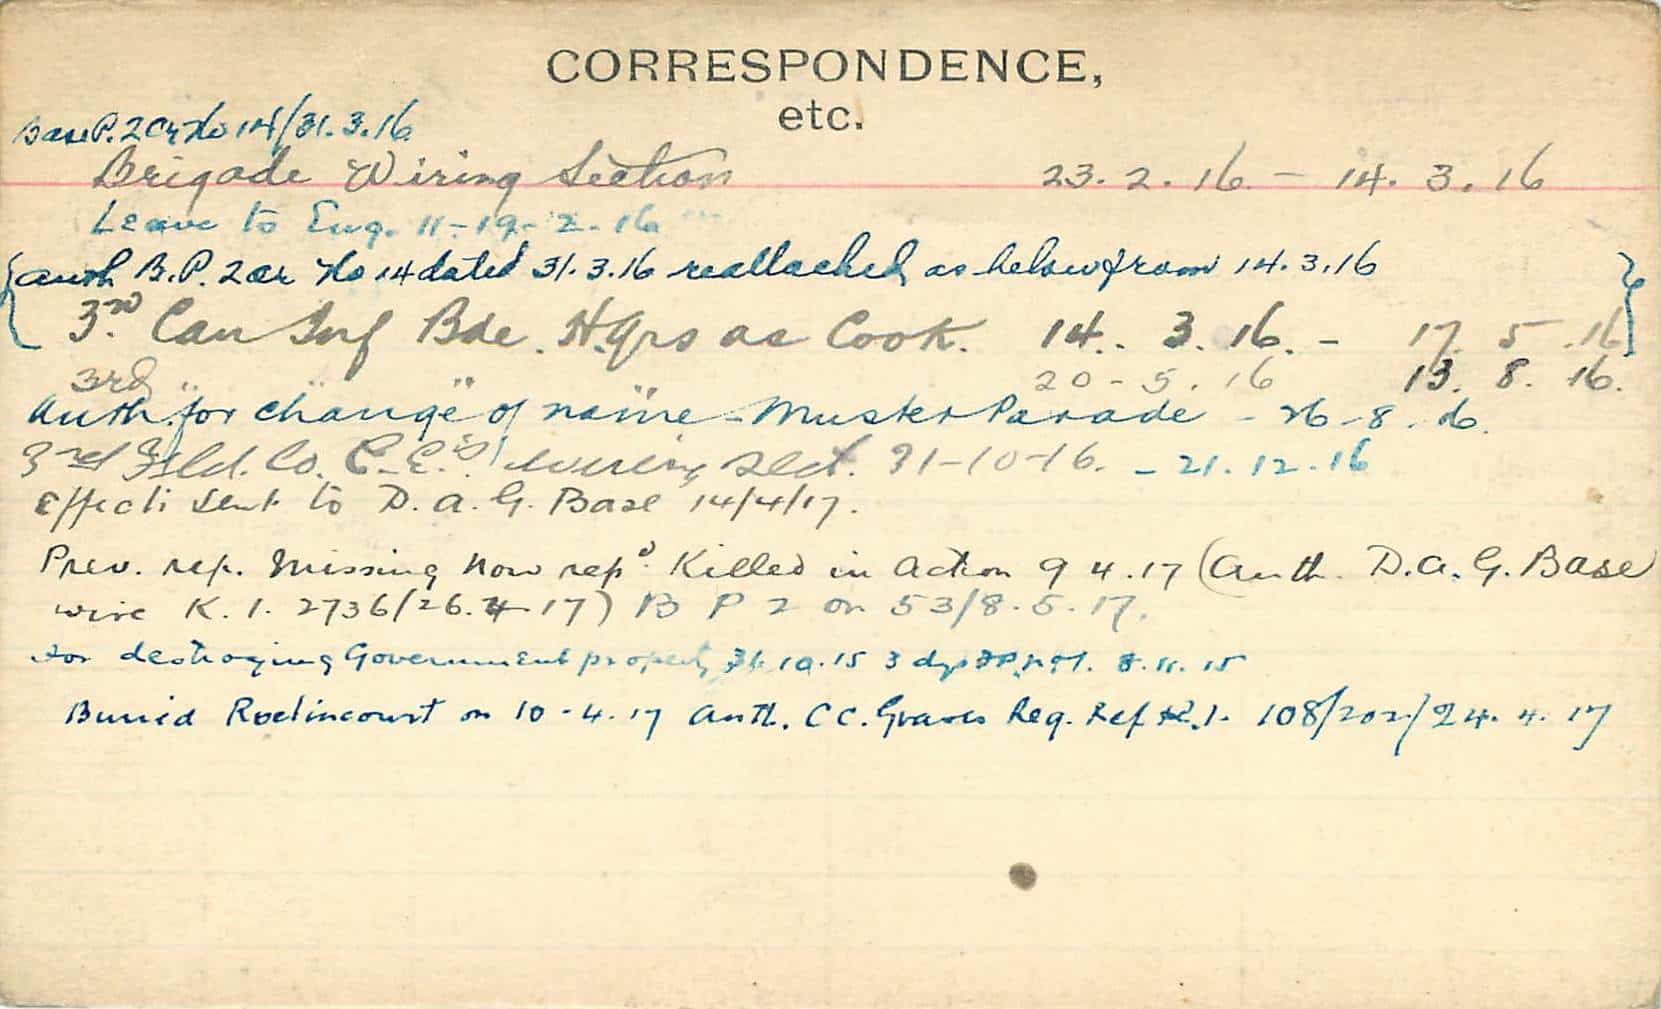 CORRESPONDENCE,
etc.
Base P. 2 Or No 14/31.3.16
Brigade Wiring Section 23.2.16 - 14.3.16
Leave to Eng. 11-19-2-16
{ auth B.P. 2 or No 14 dated 31.3.16 reattached as below from 14.3.16 }
3rd Can Inf Bde. H.Qrs as Cook. 14.3.16. - 17 5 .16
3rd " " " " 20-5.16 13. 8. 16.
Auth. for change of name - Muster Parade - 26-8-16.
3rd Fld. Co. C.E.'s wiring Sect. 31-10-16. - 21.12.16
Effects sent to D.A.G. Base 14/4/17.
Prev. rep. Missing Now repd. Killed in Action 9 4.17 (Auth. D.A.G. Base
wire K.1. 2736/26.4.17) B P 2 or 53/8.5.17.
For destroying Government property 31.10.15 3 dys F.P. No 1. 8.11.15
Buried Roclincourt on 10-4.17 Auth. C C. Graves Reg. Ref K.1. 108/202/24.4.17